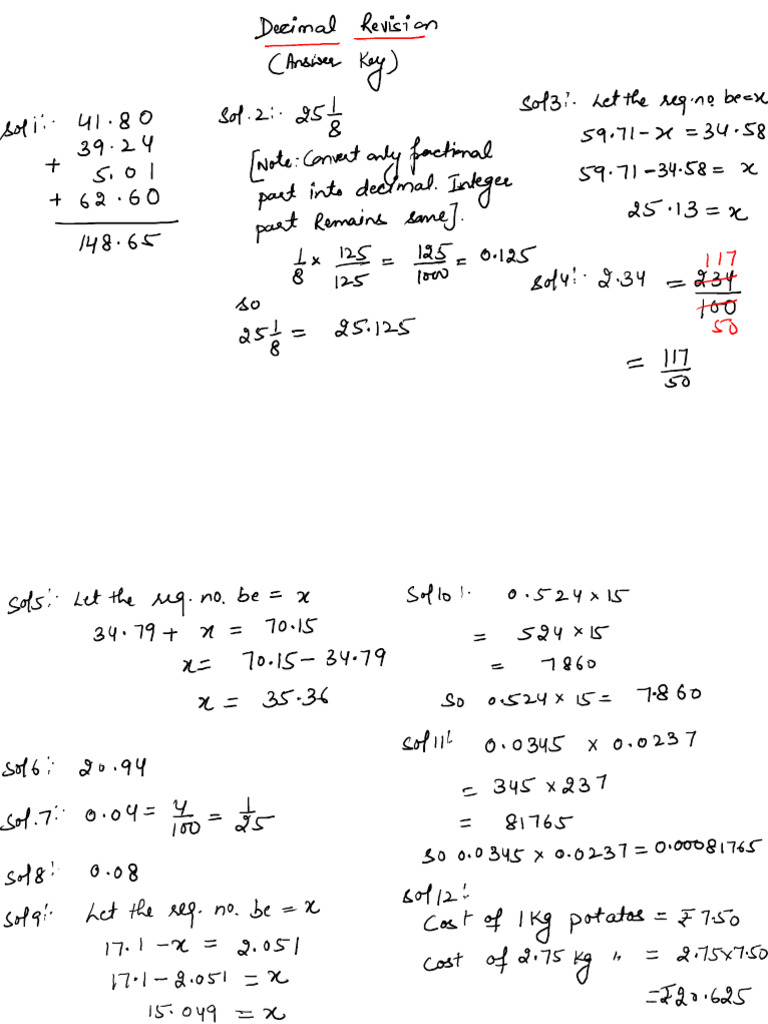 Decimal Revision
(Answer Key)
Sol1:- 41.80
39.24
+ 5.01
+ 62.60
148.65
Sol.2:- 25 1/8
[Note: Convert only fractional
part into decimal. Integer
part Remains same].
1/8 × 125/125 = 125/1000 = 0.125
so
25 1/8 = 25.125
Sol3:- Let the req. no. be = x
59.71 - x = 34.58
59.71 - 34.58 = x
25.13 = x
Sol4:- 2.34 = 234/100
117
50
= 117/50
Sol5:- Let the req. no. be = x
34.79 + x = 70.15
x = 70.15 - 34.79
x = 35.36
Sol6:- 20.94
Sol.7:- 0.04 = 4/100 = 1/25
Sol8:- 0.08
Sol9:- Let the req. no. be = x
17.1 - x = 2.051
17.1 - 2.051 = x
15.049 = x
Sol10:- 0.524 × 15
= 524 × 15
= 7860
So 0.524 × 15 = 7.860
Sol11:- 0.0345 × 0.0237
= 345 × 237
= 81765
So 0.0345 × 0.0237 = 0.00081765
Sol12:-
Cost of 1 Kg potatos = ₹7.50
Cost of 2.75 kg " = 2.75×7.50
= ₹20.625